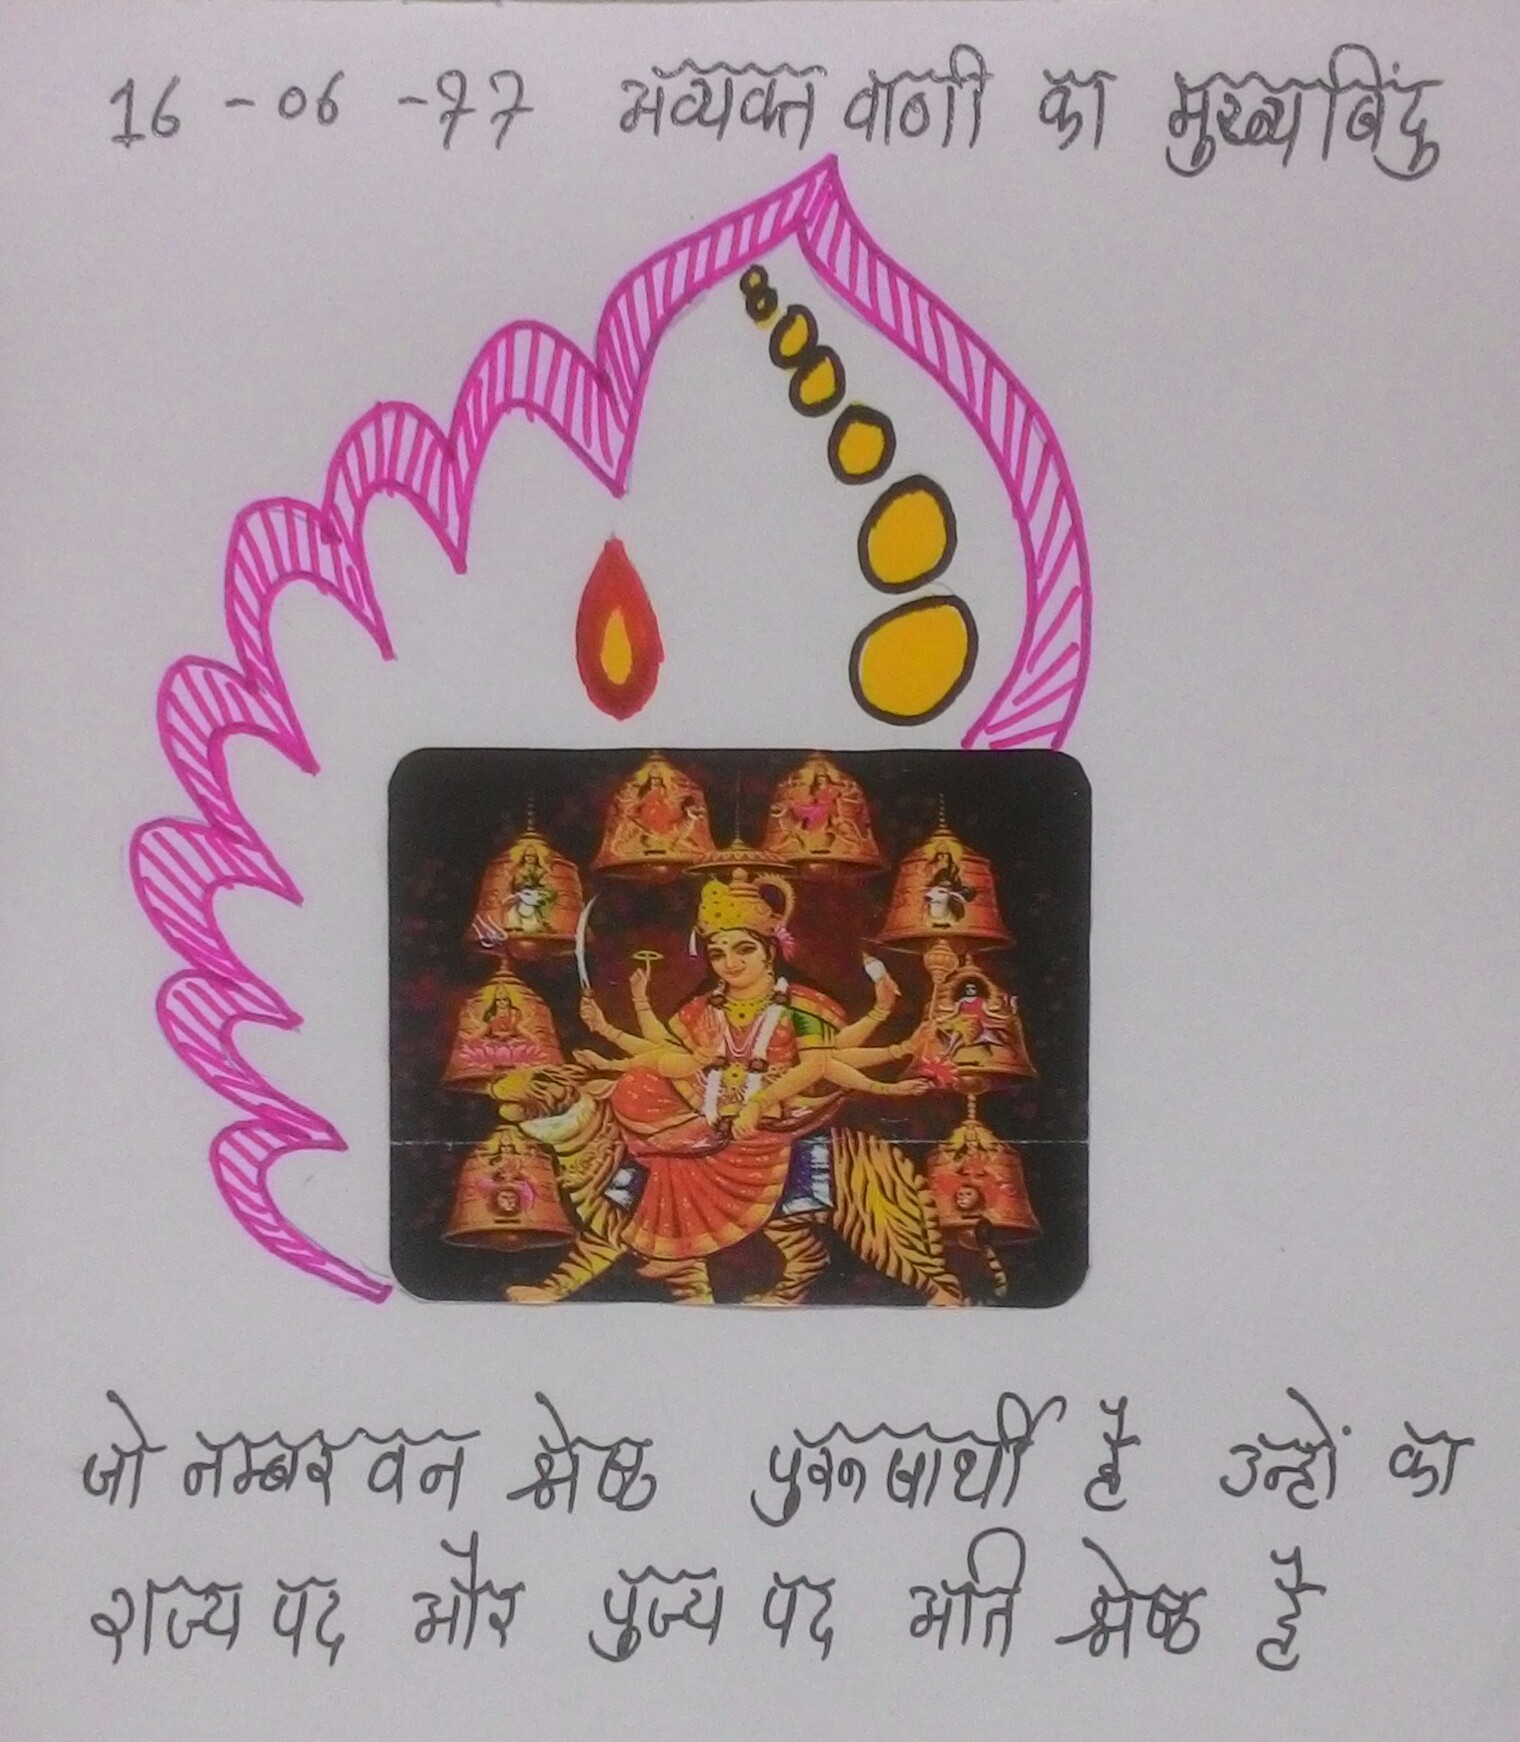 16-06-77 अव्यक्त वाणी का मुख्य बिंदु
जो नम्बर वन श्रेष्ठ पुरूषार्थी है उन्हों का
राज्य पद और पुज्य पद अति श्रेष्ठ है